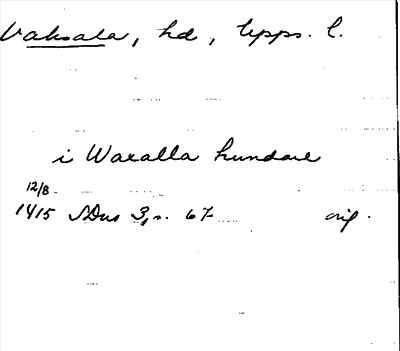 Vaksala, hd, Upps. l.
i Waxalla hundare
12/8
1415 SDns 3, s. 67 orig.